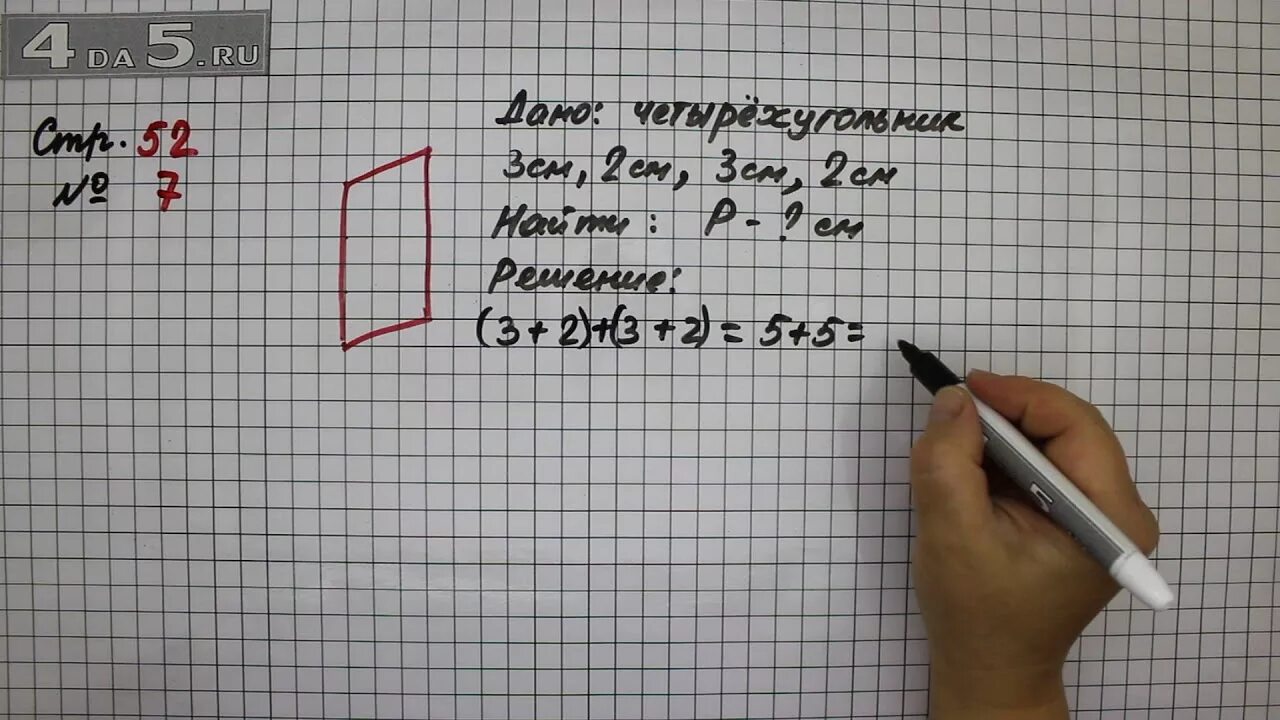 4 DA 5.RU
Стр. 52
№ 7
Дано: четырёхугольник
3см, 2см, 3см, 2см
Найти: P - ? см
Решение:
(3 + 2)+(3 + 2) = 5+5=
5